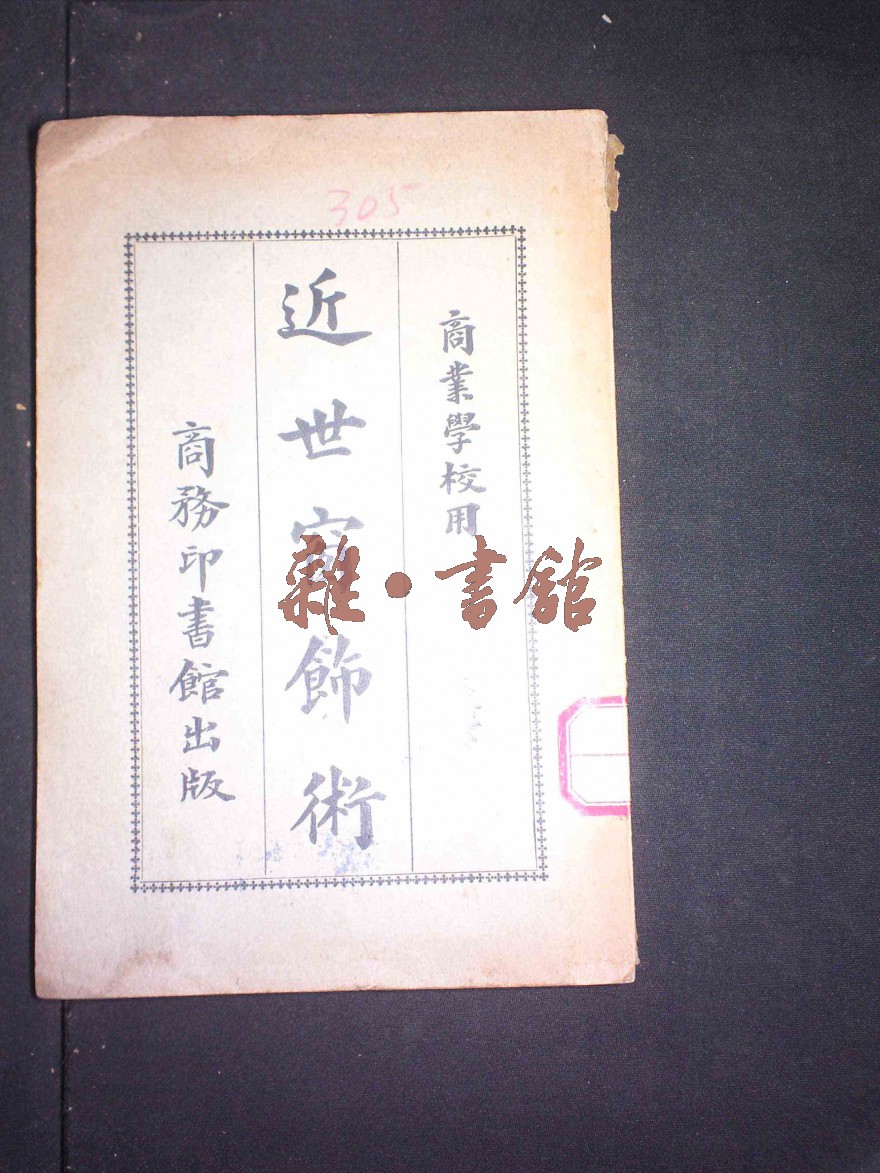 305
商業學校用
近世窗飾術
商務印書館出版
雜·書館